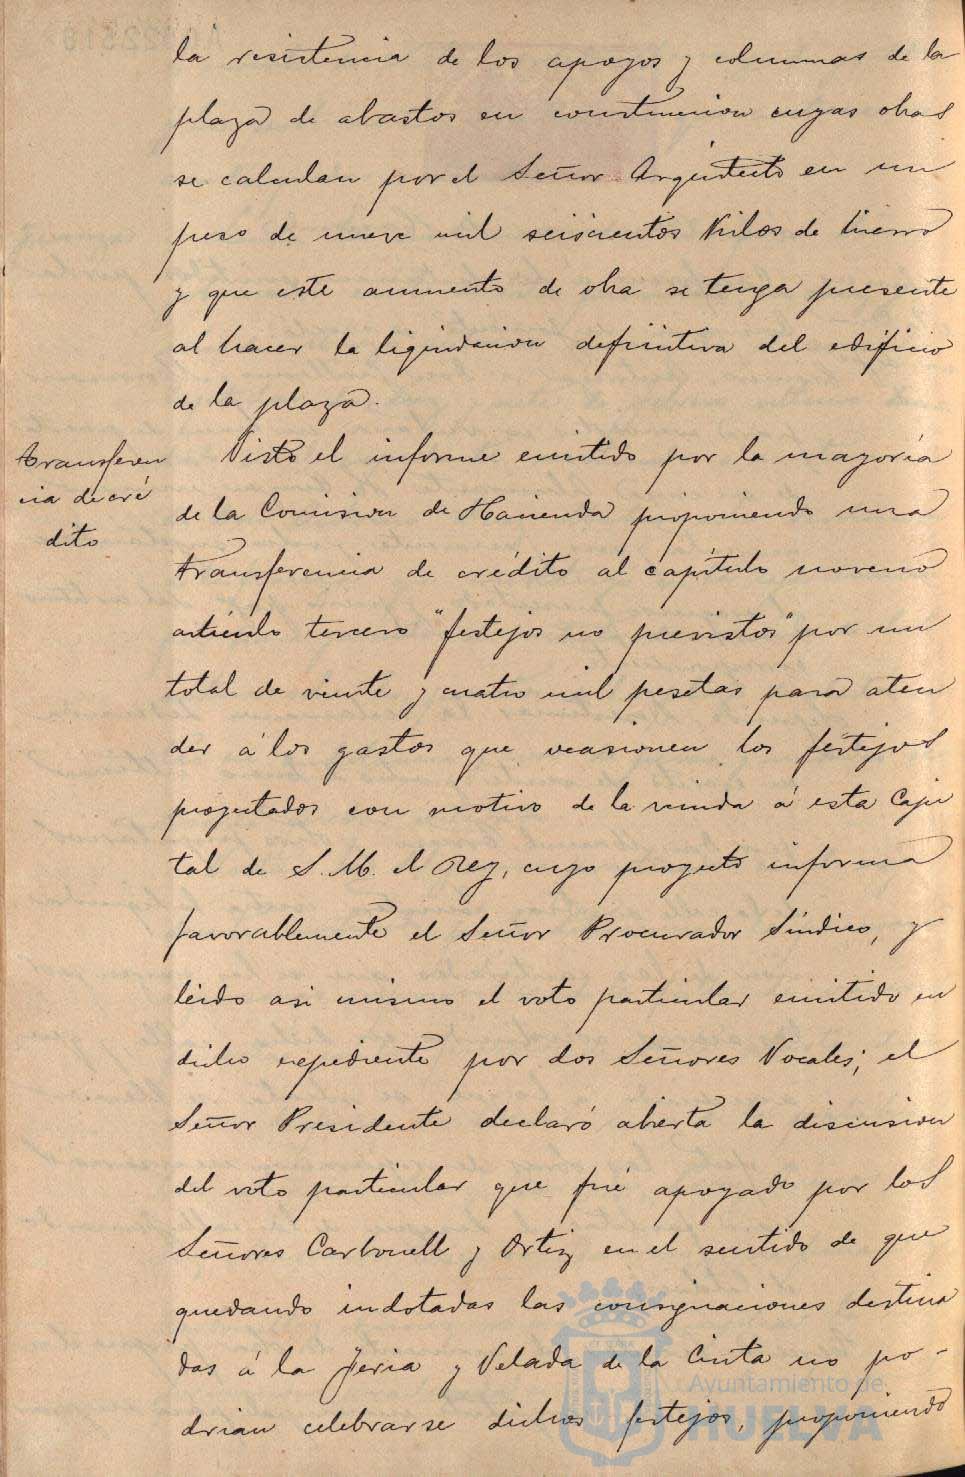 la resistencia de los apoyos y columnas de la
plaza de abastos en construcion cuyas obras
se calculan por el Señor Arquitecto en un
peso de nueve mil seiscientos Kilos de hierro
y que este aumento de obra se tenga presente
al hacer la liquidacion definitiva del edificio
de la plaza.
Transferen
cia de cré
dito
Visto el informe emitido por la mayoría
de la Comision de Hacienda proponiendo una
transferencia de crédito al capítulo noveno
artículo tercero "festejos no previstos" por un
total de veinte y cuatro mil pesetas para aten
der á los gastos que ocasionen los festejos
proyectados con motivo de la venida á esta Capi
tal de S. M. el Rey, cuyo proyecto informa
favorablemente el Señor Procurador Síndico, y
leido asi mismo el voto particular emitido en
dicho expediente por dos Señores Vocales; el
Señor Presidente declaró abierta la discusion
del voto particular que fué apoyado por los
Señores Carbonell y Ortiz en el sentido de que
quedando indotadas las consignaciones destina
das á la Feria y Velada de la Cinta no po-
drian celebrarse dichos festejos, proponiendo
Ayuntamiento de
HUELVA